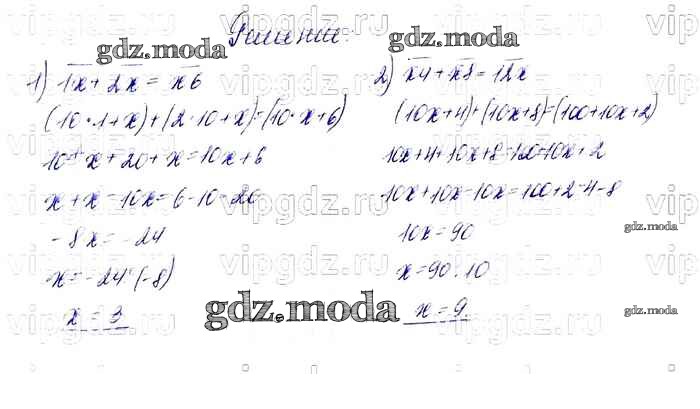 Решение:
1) 1x + 2x = x6
(10·1+x)+(2·10+x)=(10·x+6)
10+x+20+x=10x+6
x+x-10x=6-10-20
-8x=-24
x=-24:(-8)
x=3
2) x4+x8=12x
(10x+4)+(10x+8)=(100+10x+2)
10x+4+10x+8=100+10x+2
10x+10x-10x=100+2-4-8
10x=90
x=90:10
x=9
gdz.moda
gdz.moda
gdz.moda
gdz.moda
gdz.moda
vipgdz.ru
vipgdz.ru
vipgdz.ru